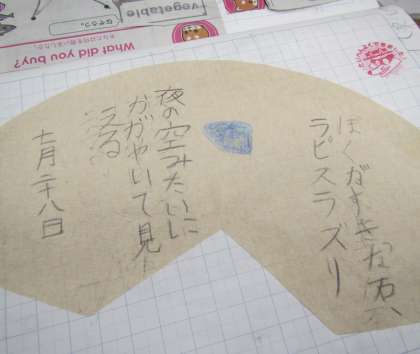 ぼくがすきな石、
ラピスラズリ
夜の空みたいに
かがやいて見
える
七月二十八日
What did you buy?
vegetable
なぞろう。